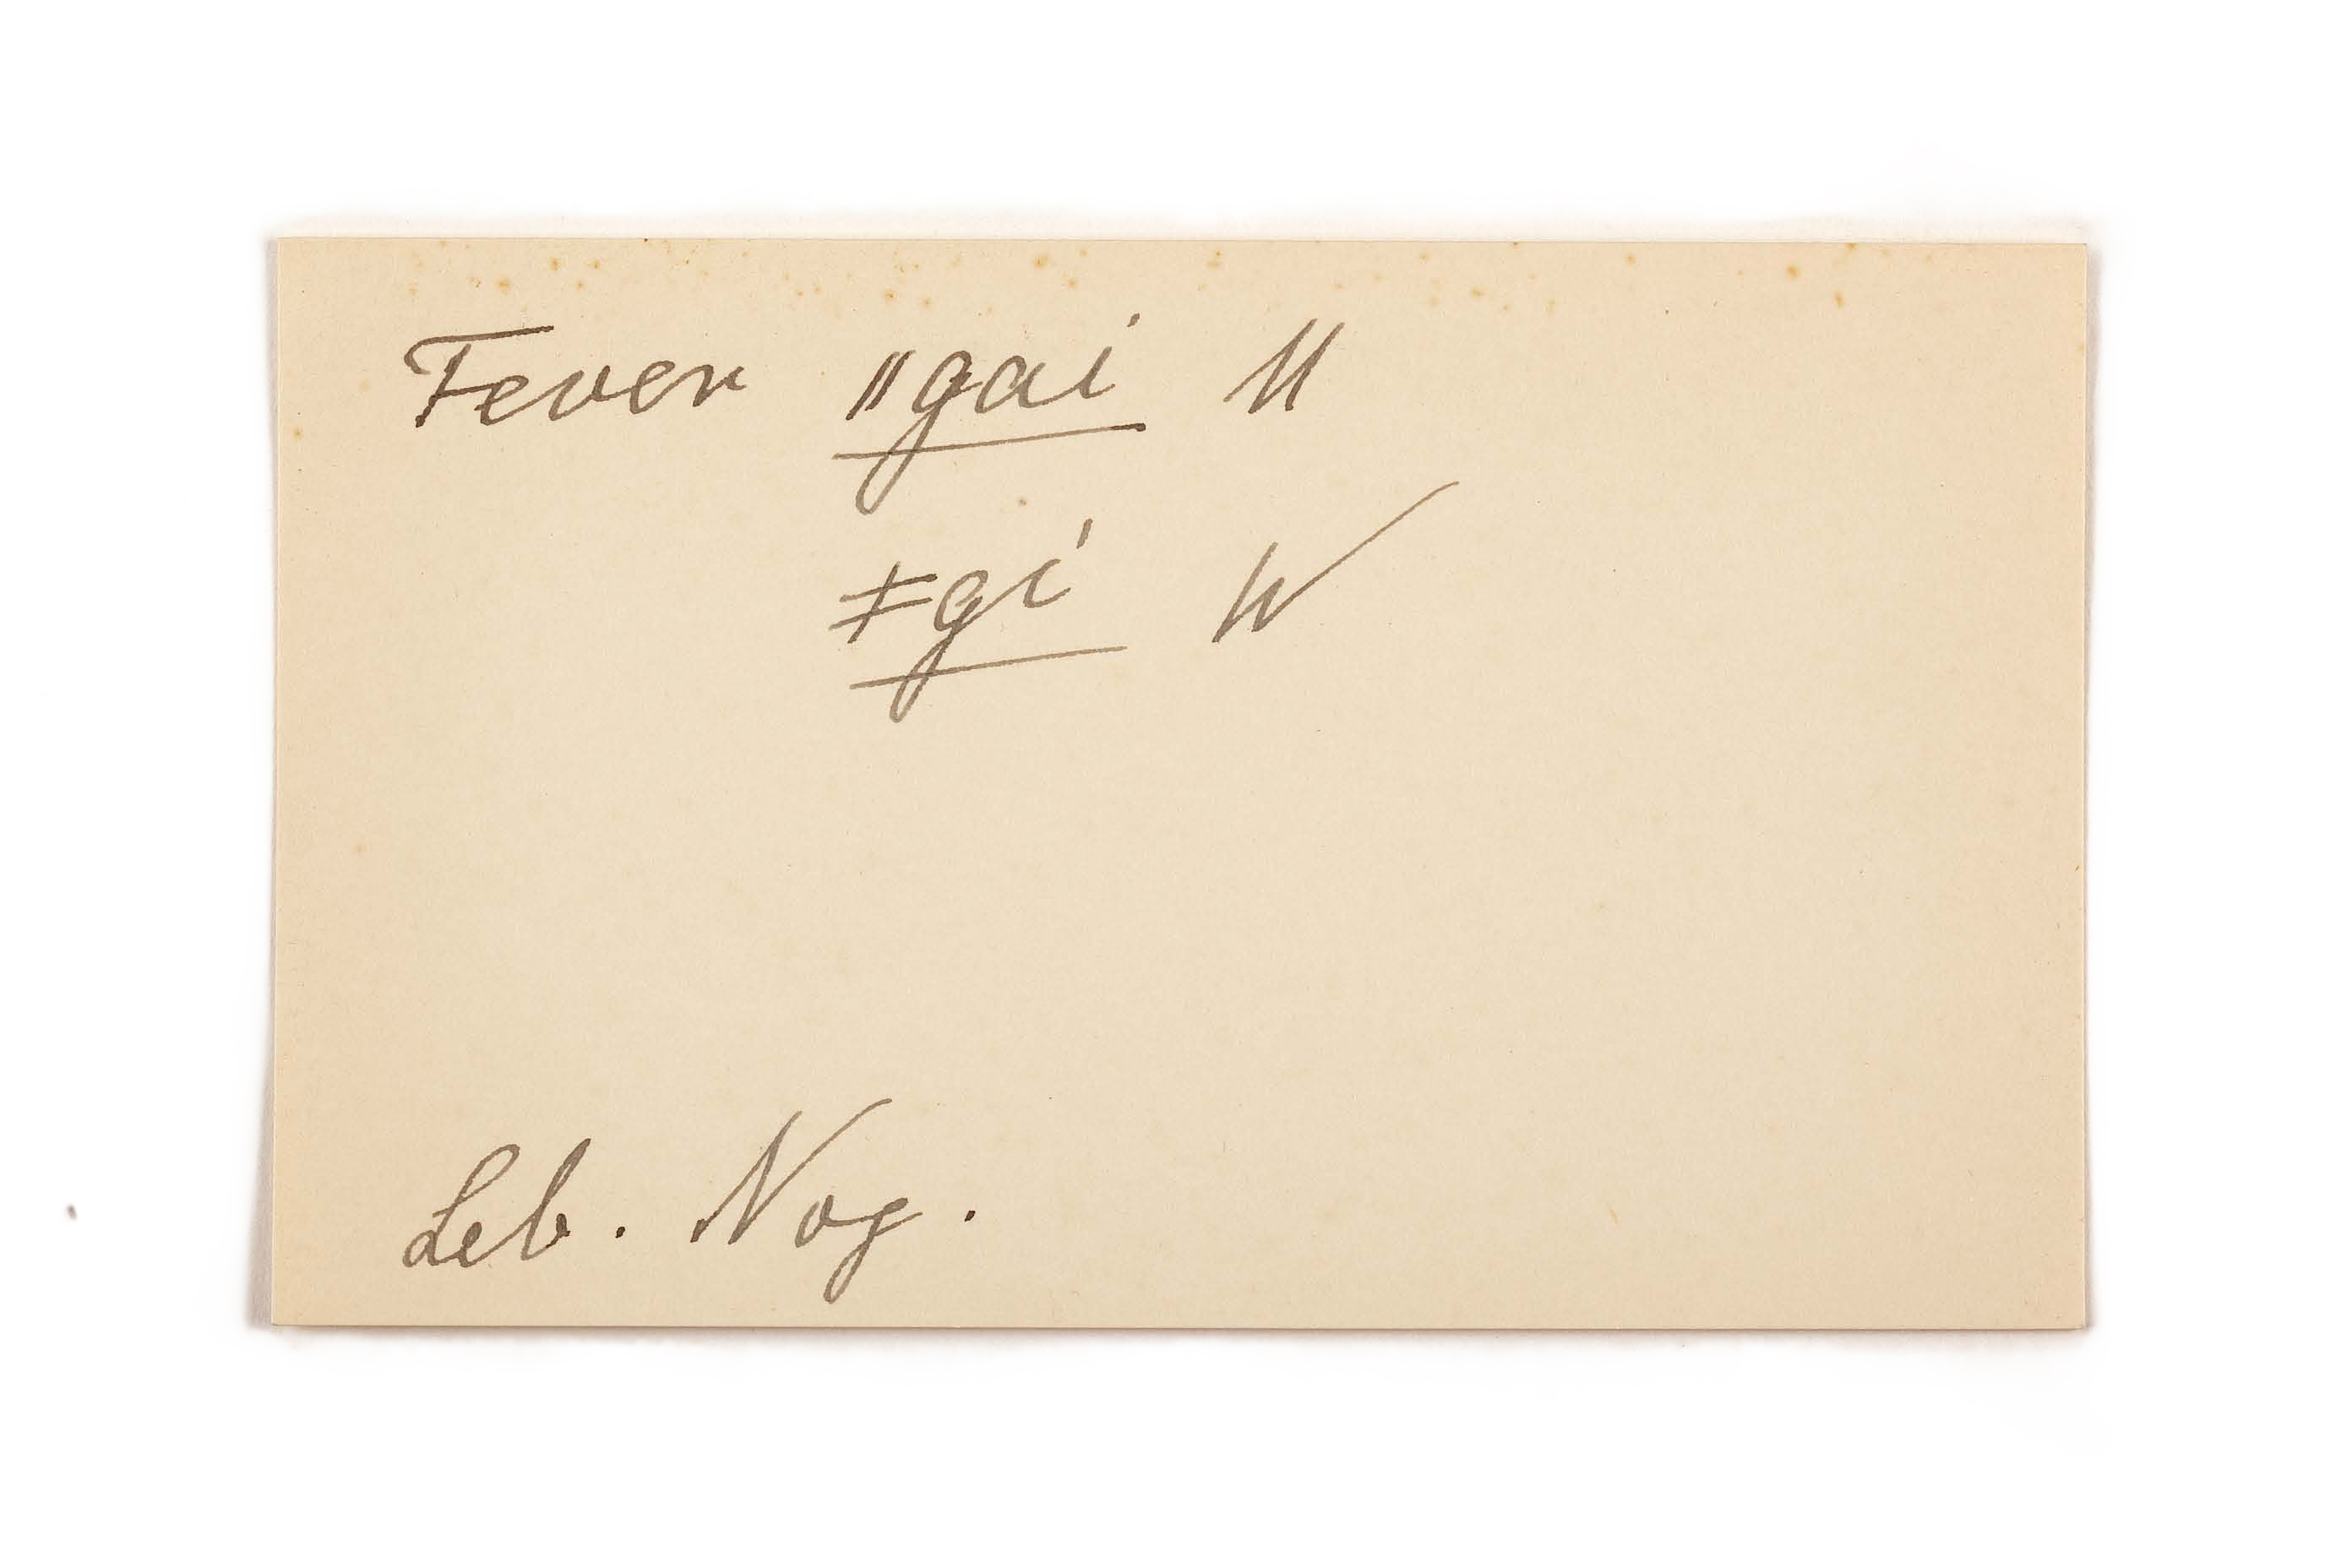 Fever ǁgai M
ǂgi W
Leb. Nog.